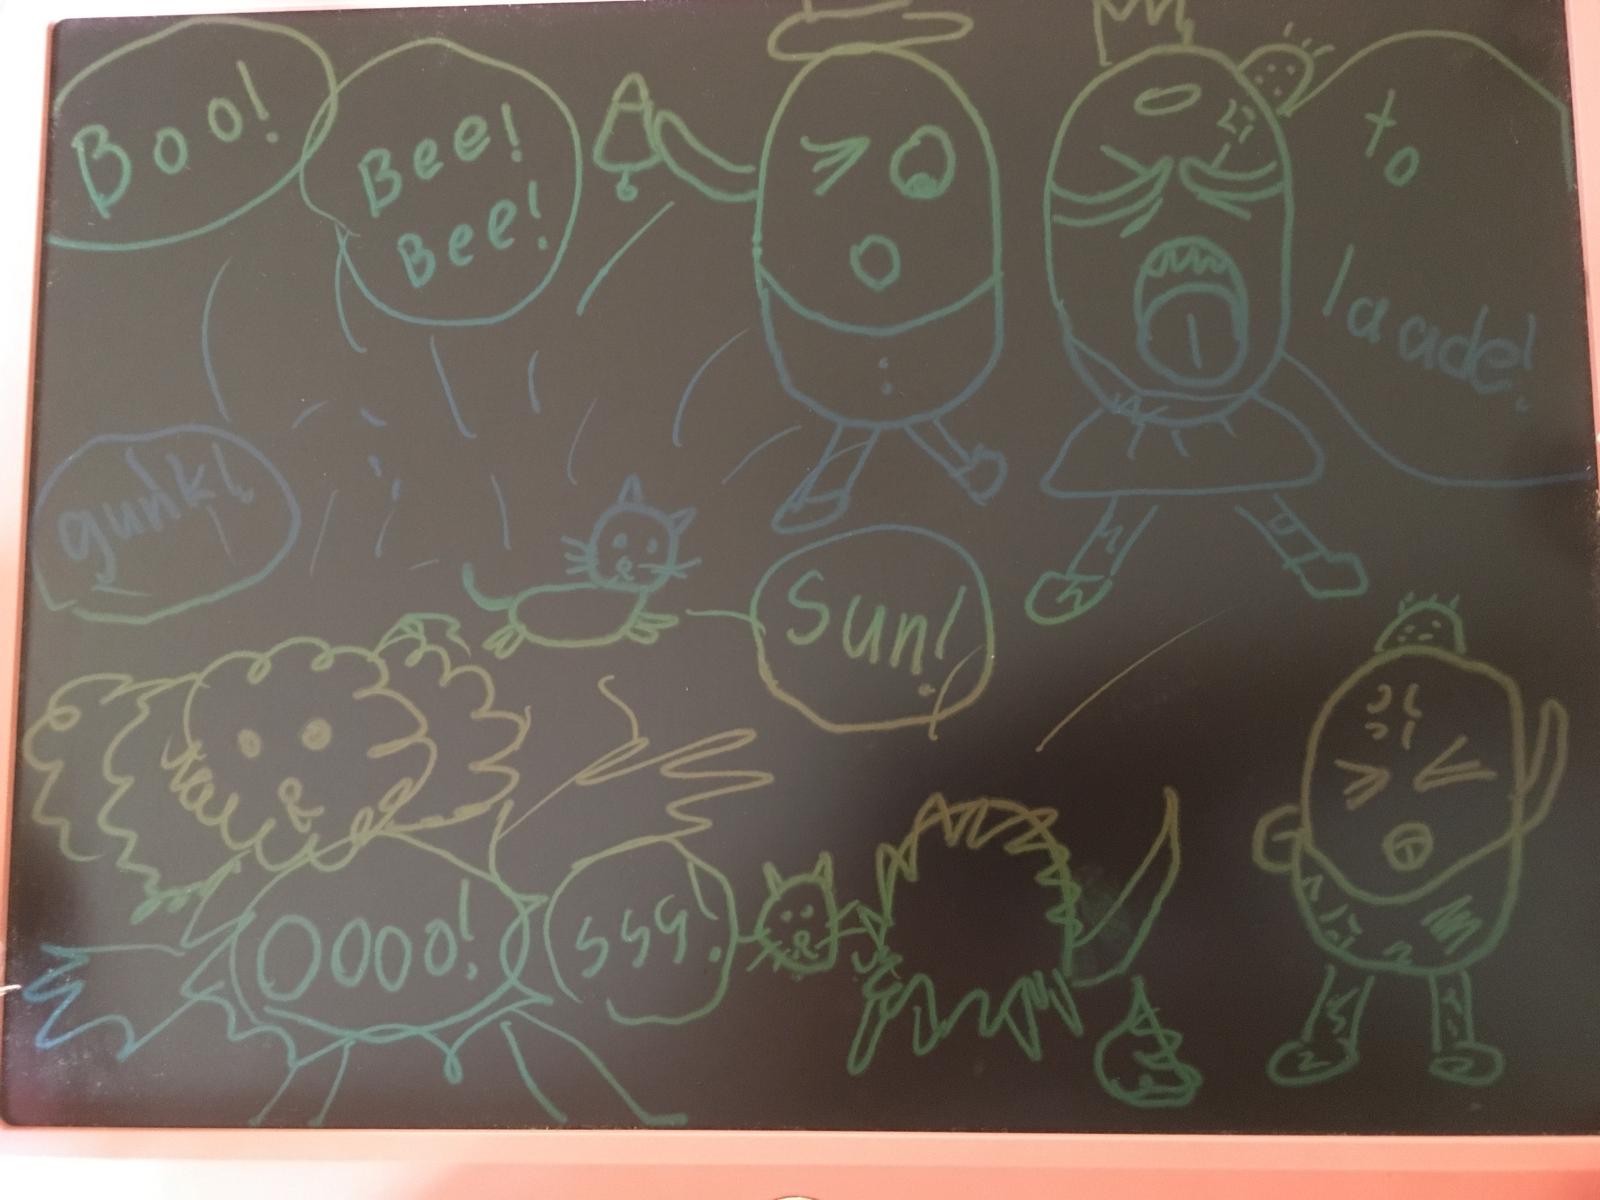 Boo!
Bee!
Bee!
to
laade!
gunk!
Sun!
Oooo!